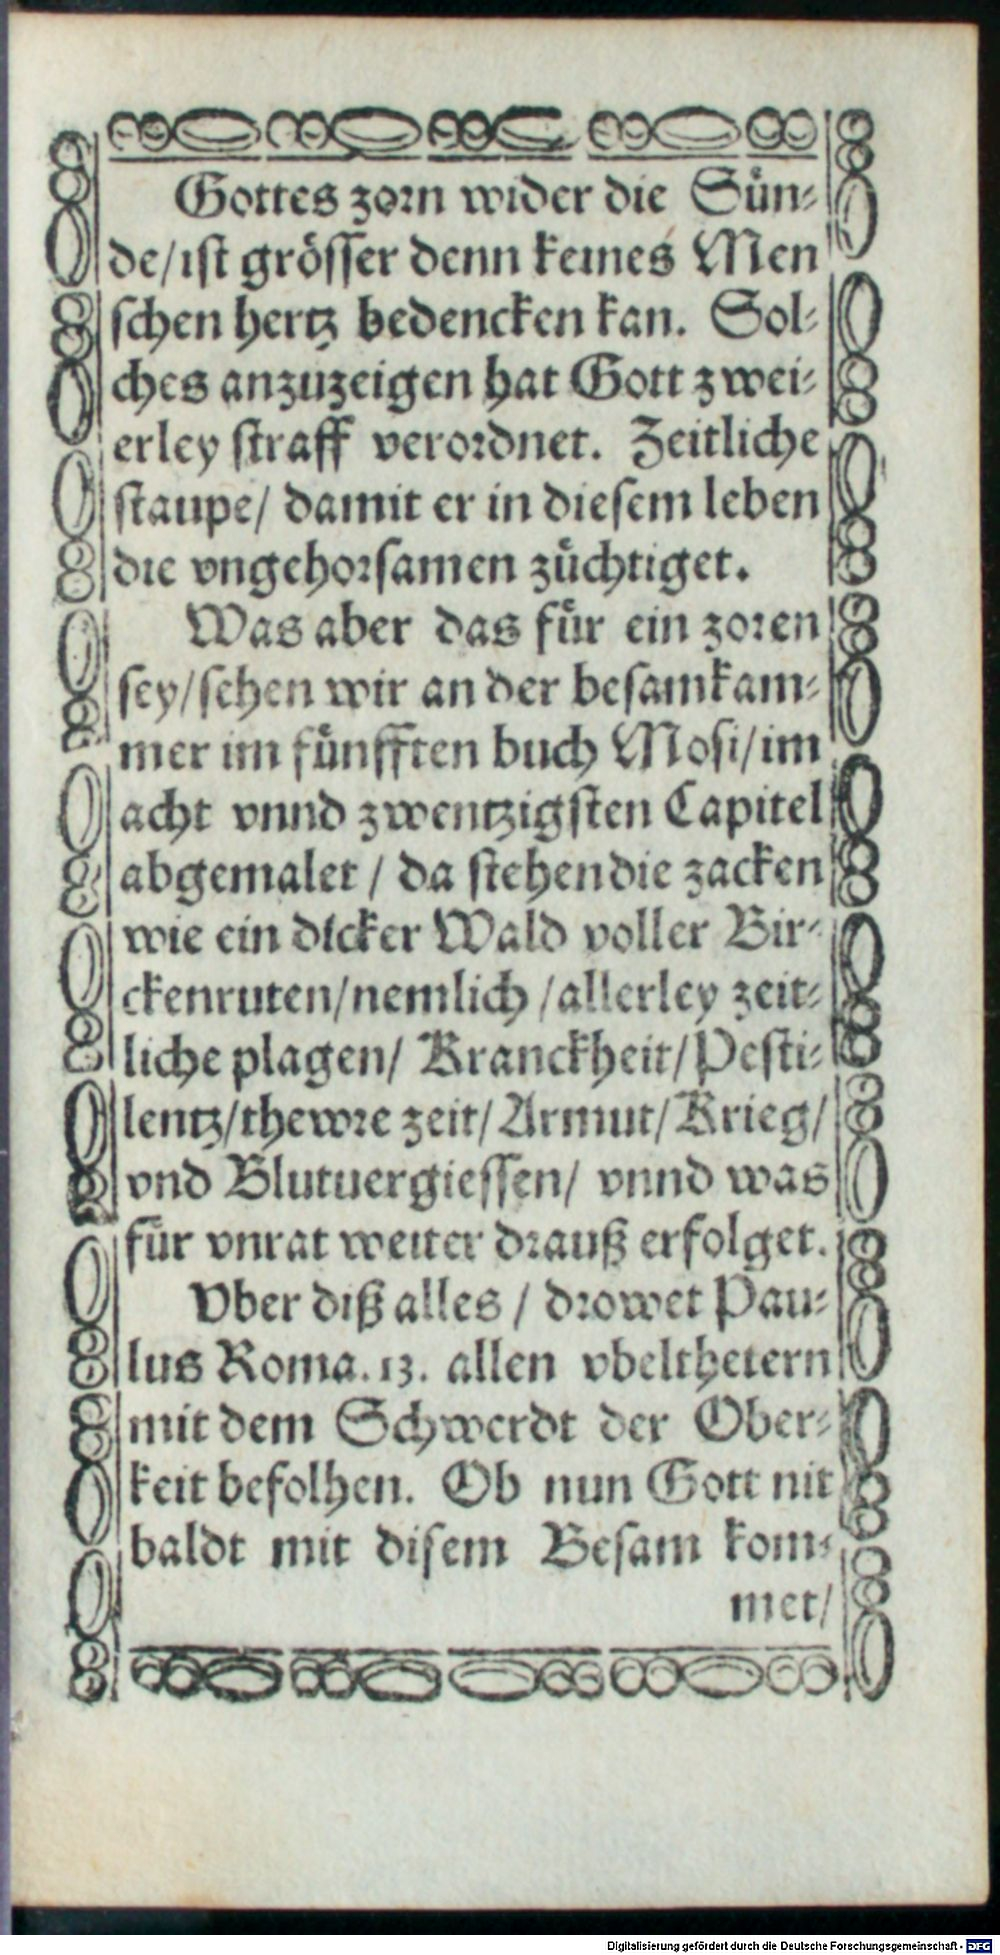 Gottes zorn wider die Sün-
de/ist grösser denn keines Men
schen hertz bedencken kan. Sol-
ches anzuzeigen hat Gott zwei-
erley straff verordnet. Zeitliche
staupe/ damit er in diesem leben
die vngehorsamen züchtiget.
Was aber das für ein zoren
sey/sehen wir an der besamkam-
mer im fünfften buch Mosi/im
acht vnnd zwentzigsten Capitel
abgemalet / da stehen die zacken
wie ein dicker Wald voller Bir-
ckenruten/nemlich /allerley zeit-
liche plagen/ Kranckheit/Pesti-
lentz/thewre zeit/Armut/Krieg/
vnd Blutuergiessen/ vnnd was
für vnrat weiter drauß erfolget.
Vber diß alles / drowet Pau-
lus Roma. 13. allen vbelthetern
mit dem Schwerdt der Ober-
keit befolhen. Ob nun Gott nit
baldt mit disem Besam kom-
met/
Digitalisierung gefördert durch die Deutsche Forschungsgemeinschaft - DFG